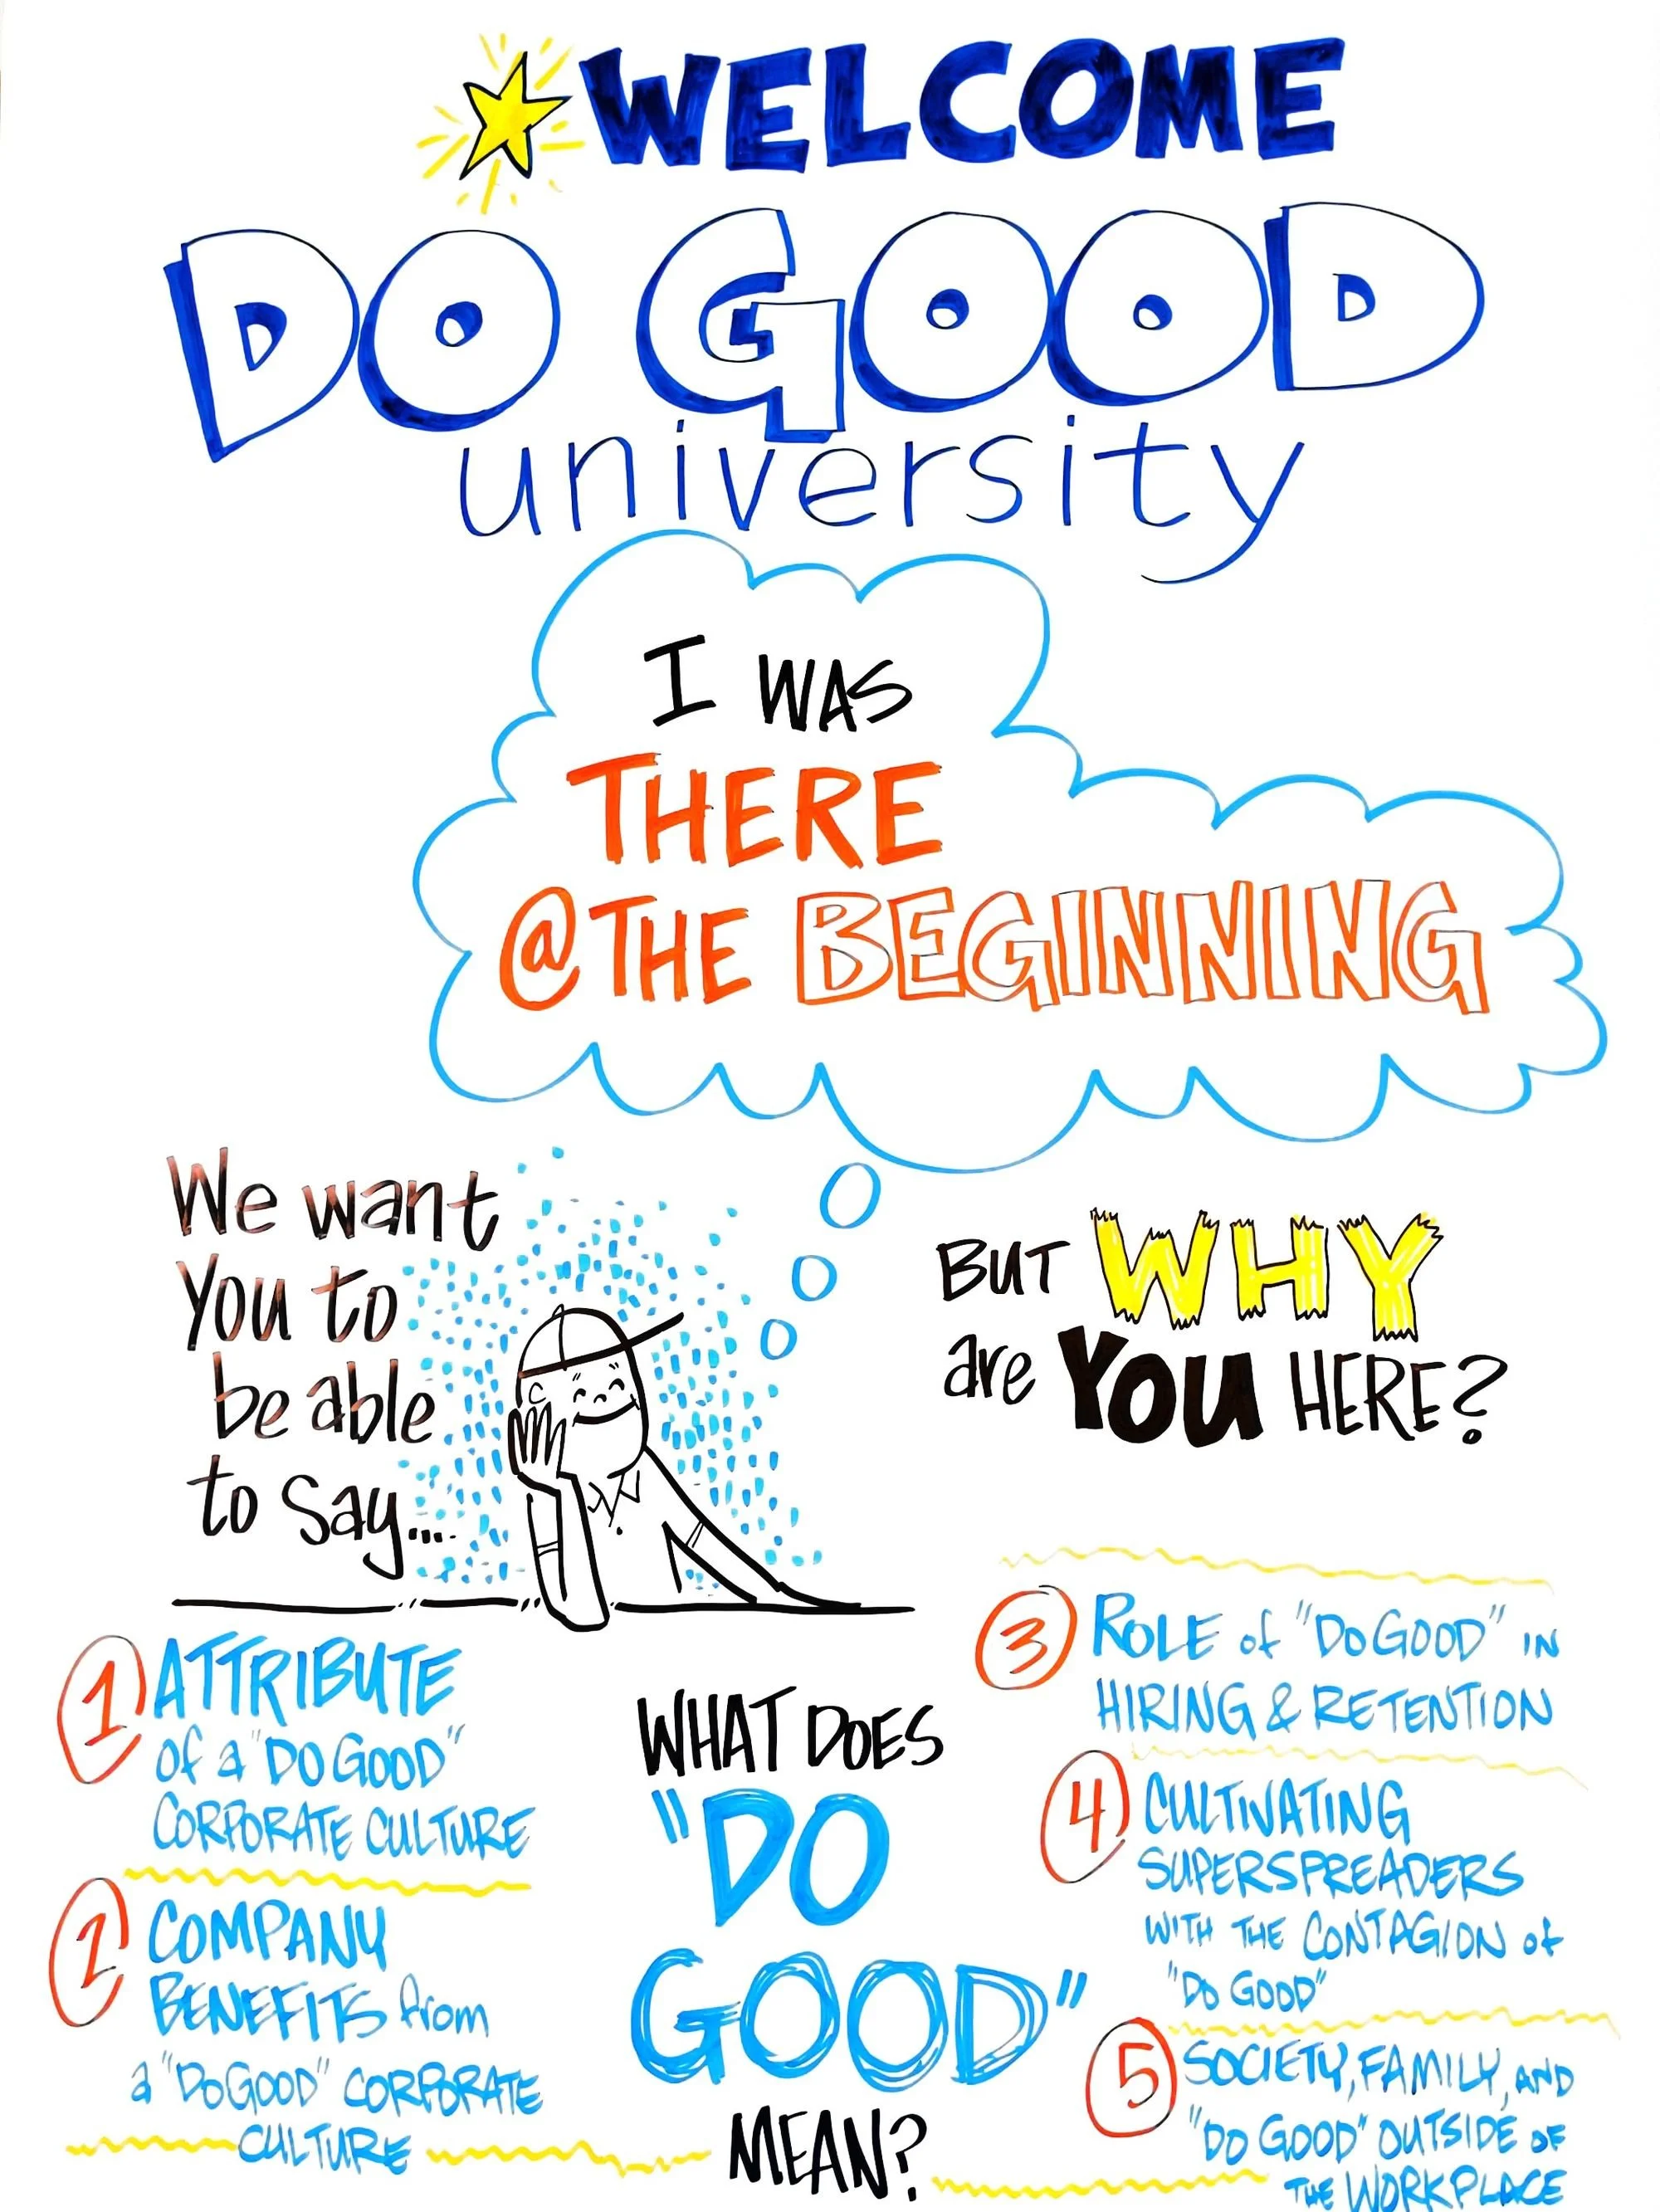 WELCOME
DO GOOD
university
I WAS
THERE
@ THE BEGINNING
We want
You to
be able
to say...
BUT WHY
are YOU HERE?
1 ATTRIBUTE
of a "DO GOOD"
CORPORATE CULTURE
2 COMPANY
BENEFITS from
a "DO GOOD" CORPORATE
CULTURE
WHAT DOES
"DO
GOOD"
MEAN?
3 ROLE of "DO GOOD" IN
HIRING & RETENTION
4 CULTIVATING
SUPERSPREADERS
WITH THE CONTAGION of
"DO GOOD"
5 SOCIETY, FAMILY, AND
"DO GOOD" OUTSIDE OF
THE WORKPLACE